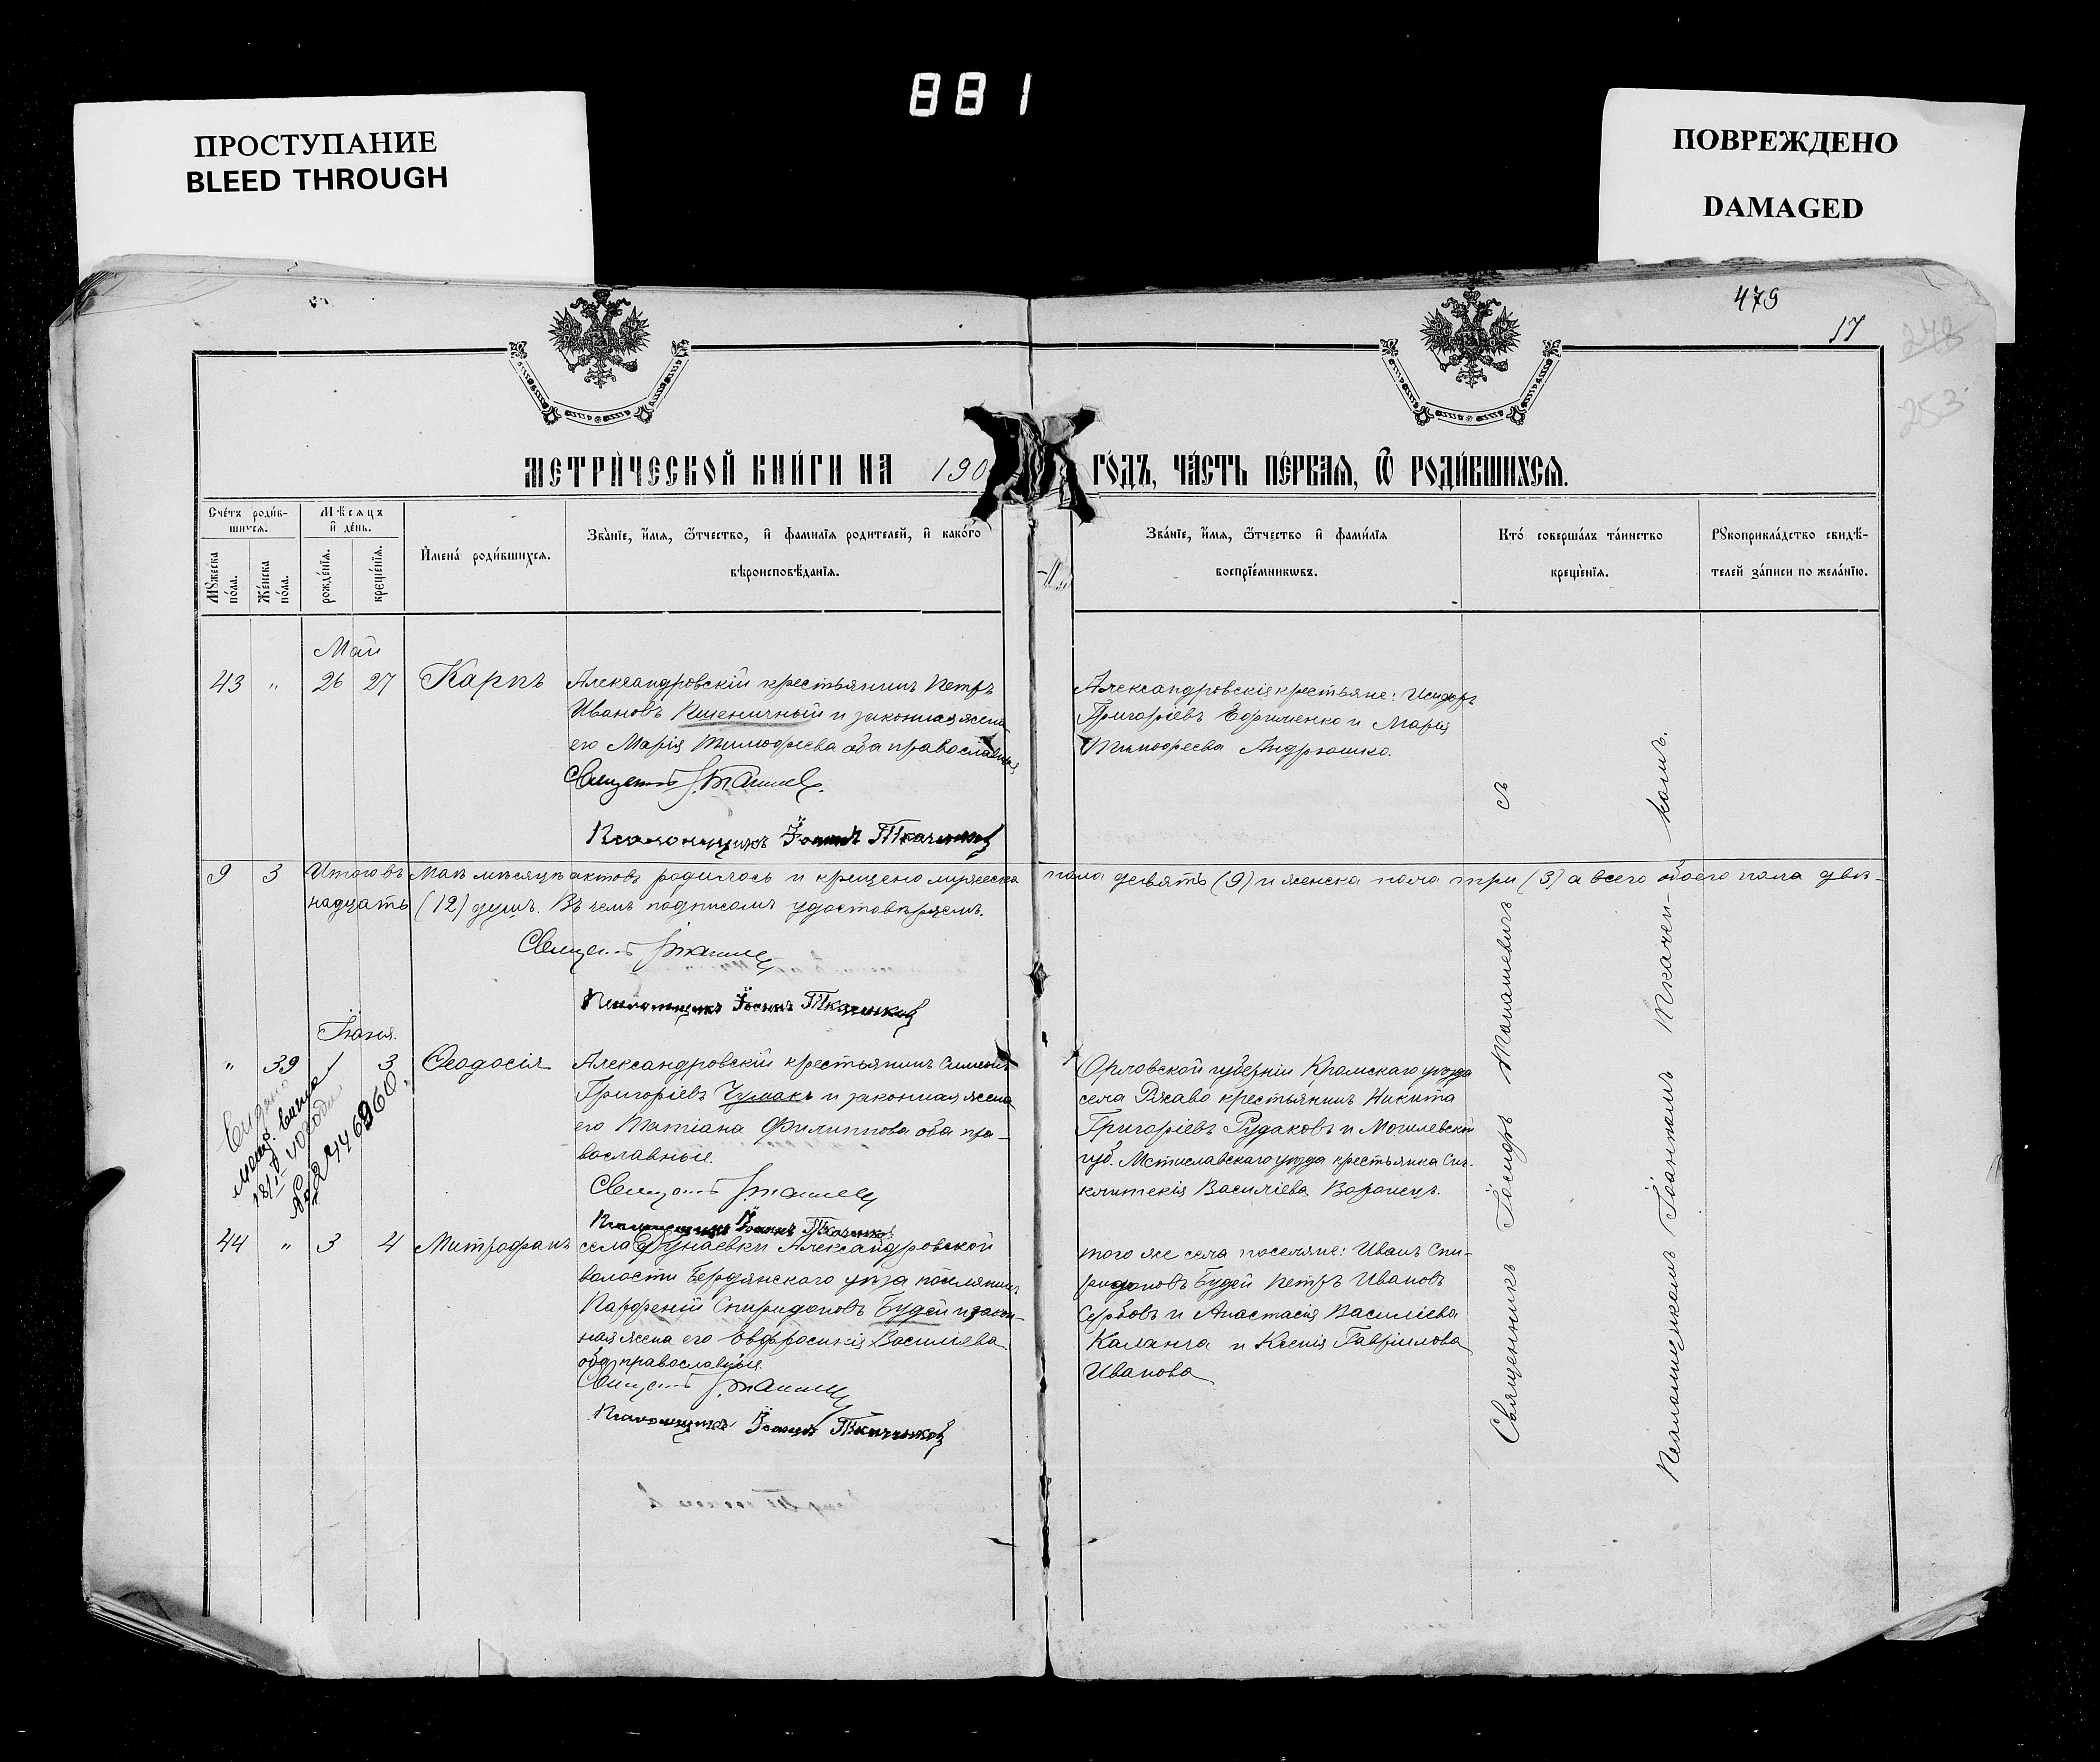 881
ПРОСТУПАНИЕ
BLEED THROUGH
ПОВРЕЖДЕНО
DAMAGED
479
17
248
253
МЕТРИ́ЧЕСКОЙ КНИ́ГИ НА 190
ГО́ДЪ, ЧА́СТЬ ПЕ́РВАЯ, Ѿ РОДИ́ВШИХСЯ.
Сче́тъ роди́в-
шихся.
Мѣсяцъ
и҆ де́нь.
Мꙋ́жеска
по́ла.
Же́нска
по́ла.
рожде́нїѧ.
креще́нїѧ.
И҆мена̀ роди́вшихсѧ.
Зва́нїе, и҆́мѧ, ѻ҆́тчество, и҆ фами́лїѧ роди́телей, и҆ како́гѡ
вѣроисповѣ́данїѧ.
Зва́нїе, и҆́мѧ, ѻ҆́тчество и҆ фами́лїѧ
воспрїе́мникѡвъ.
Кто́ соверша́лъ та́инство
креще́нїѧ.
Рꙋкоприкла́дство свидѣ́-
телей за́писи по жела́нїю.
Май
43 " 26 27 Карпъ
Александровскій крестьянинъ Петръ
Ивановъ Пшеничный и законная жена
его Марія Тимофеева оба православные
Священ. І. Таташев.
Псаломщикъ Іоаннъ Ткаченков
Александровскіе крестьяне: Исидоръ
Григоріевъ Ефименко и Марія
Тимофеева Андрюшко.
9 3 Итого въ Маѣ мѣсяцѣ актовъ родилось и крещено мужеска пола девять (9) и женска пола три (3) а всего обоего пола два-
надцать (12) душъ. Въ чемъ подписомъ удостовѣряемъ.
Священ.
Псаломщикъ Іоаннъ Ткаченков
Іюня.
" 39 1 3 Ѳеодосія
Александровскій крестьянинъ Симеонъ
Григоріевъ Чумакъ и законная жена
его Татіана Филиппова оба пра-
вославные.
Священ.
Псаломщикъ Іоаннъ Ткаченков
Орловской губерніи Кромскаго уѣзда
села Ржаво крестьянинъ Никита
Григоріевъ Рудаковъ и Могилевской
губ. Мстиславскаго уѣзда крестьянка Син-
клитекія Василіева Воронецъ.
метр. выпись
44 " 3 4 Митрофанъ
села Дунаевки Александровской
волости Бердянскаго уѣзда поселянинъ
Парфеній Спиридоновъ Будей и закон-
ная жена его Евфросинія Василіева
оба православные.
Священ.
Псаломщикъ Іоаннъ Ткаченков
того же села поселяне: Иванъ Спи-
ридоновъ Будей Петръ Ивановъ
Сербовъ и Анастасія Василіева
Каланга и Ксенія Гавріилова
Иванова
Священникъ Іосифъ Таташевичъ съ
Псаломщикомъ Іоанномъ Ткачен-
комъ.